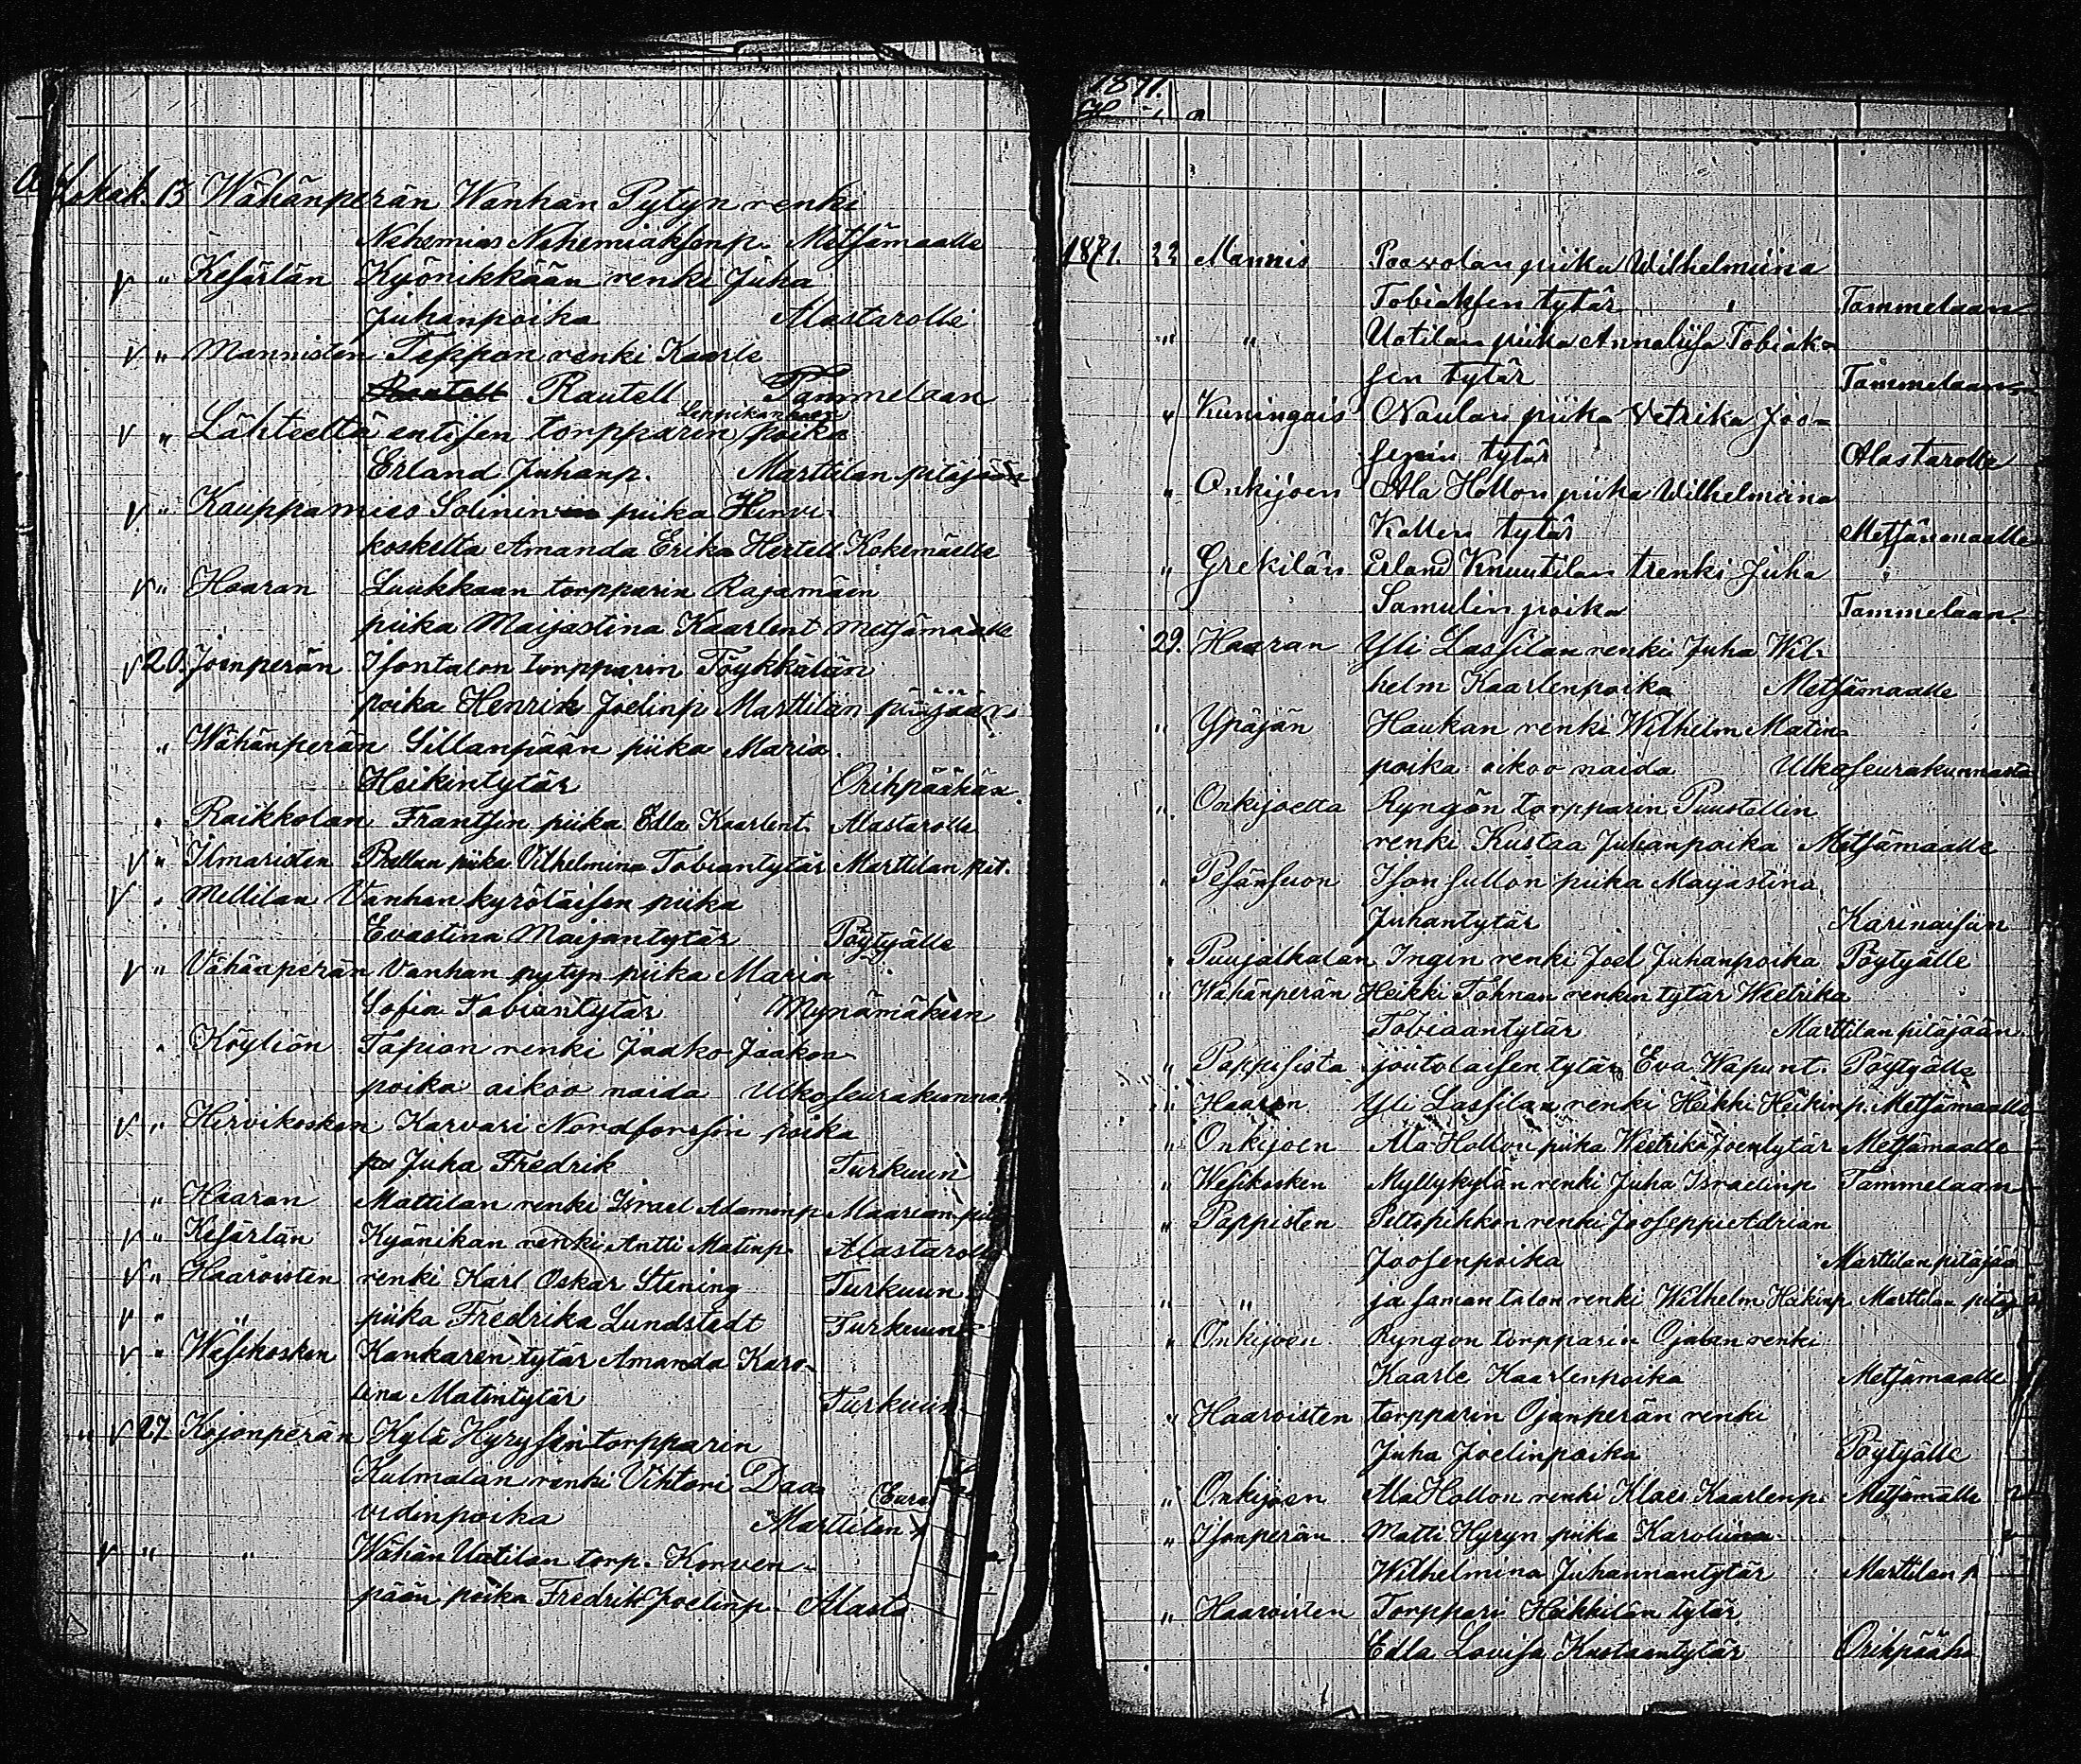 Lokak. 13 Wähänperän Wanhan Pytyn renki
Nehemias Nehemiaksenp. Metsämaalle
V " Kesärlän Kyönikkään renki Juha
Juhanpoika Alastarolle
V " Mannisten Teppon renki Kaarle
Rautell Rautell Tammelaan
V " Lähteeltä entisen torpparin poika
Erland Juhanp. Marttilan pitäjään
V " Kauppamies Solinin piika Hirvi-
koskelta Amanda Erika Hertell Kokemäelle
V " Haaran Luukkaan torpparin Rajamäen
piika Maijastina Kaarlent Metsämaalle
V 20. Joenperän Isontalon torpparin Töykkälän
poika Henrik Joelinp Marttilan pitäjään
" Wähänperän Sillanpään piika Maria
Heikintytär Orihpäähän
" Raikkolan Frantsin piika Edla Kaarlent. Alastarolle
V " Ilmaristen Prellan piika Vilhelmina Tobiantytär Marttilan pit.
V " Mellilan Vanhankyröläisen piika
Evastina Maijantytär Pöytyälle
V " Vähänperän Vanhan pytyn piika Maria
Sofia Tobiantytär Mynämäkiin
" Köyliön Tapion renki Jaakko Jaakon
poika aikoo naida Ulkoseurakunnan
V " Hirvikosken Karvari Nordforssin poika
Juha Fredrik Turkuun
" Haaran Mattilan renki Israel Adaminp Maarian pit
V " Kesärlän Kyänikan renki Antti Matinp. Alastarolle
V " Haaroisten renki Karl Oskar Stening Turkuun
V " " piika Fredrika Lundstedt Turkuun
V " Wäsikosken Kankaren tytär Amanda Karo-
lina Matintytär Turkuun
" V 27 Kojonperän Kylä Hyrysen torpparin
Kulmalan renki Vihtori Daa
vidinpoika Marttilan
V " " Wähän Uotilan torp. Korven-
pään poika Fredrik Joelinp. Alasta
1871.
1871. 22 Mannis Paavolan piika Wilhelmiina
Tobiaksen tytär Tammelaan
" " Uotilan piika Annaliisa Tobiak-
sen tytär Tammelaan
" Kuningais Naulan piika Vetrika Joo-
sepin tytär Alastarolle
" Onkijoen Ala Hollon piika Wilhelmiina
Kallen tytär Metsänmaalle
" Grekilän Erland Knuutilan trenki Juha
Samulin poika Tammelaan.
29. Haaran Yli Lassilan renki Juha Wil-
helm Kaarlenpoika Metsämaalle
" Ypäjän Haukan renki Wilhelm Matin-
poika aikoo naida Ulkoseurakunnasta
" Onkijoelta Ryngön torpparin Puustellin
renki Kustaa Juhanpoika Metsämaalle
" Pesänsuon Isonsullon piika Maijastina
Juhantytär Karinaisiin
" Puujalkalan Ingin renki Joel Juhanpoika Pöytyälle
" Wähänperän Heikki Töhnan renkin tytär Weetrika
Tobiaantytär Marttilan pitäjään
" Pappisista joutolaisen tytär Eva Wapunt. Pöytyälle
" Haaran Yli Lassilan renki Heikki Heikinp. Metsämaalle
" Onkijoen Ala Hollon piika Weetrika Joentytär Metsämaalle
" Wesikosken Myllykylän renki Juha Israelinp Tammelaan
" Pappisten Peltopihkon renki Jooseppi Adrian
Joosenpoika Marttilan pitäjää
" " ja saman talon renki Wilhelm Heikinp Marttilan pitäj
" Onkijoen Ryngön torpparin Ojalan renki
Kaarle Kaarlenpoika Metsämaalle
" Haaroisten torpparin Ojanperän renki
Juha Joelinpoika Pöytyälle
" Onkijoen Ala Hollon renki Klaes Kaarlenp. Metsämälle
" Isonperän Matti Hyryn piika Karoliina
Wilhelmina Juhannantytär Marttilan p
" Haaroisten Torppari Heikkilän tytär
Edla Lovisa Kustaantytär Orihpäähä